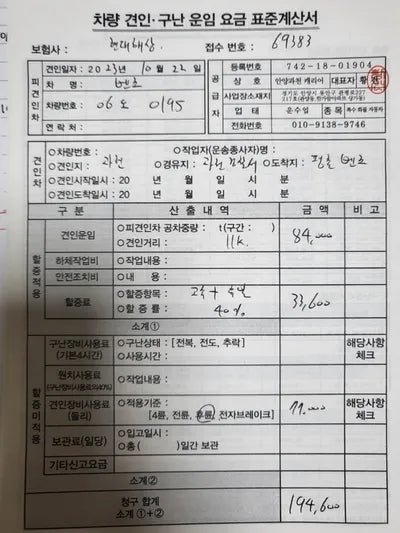 차량 견인·구난 운임 요금 표준계산서
보험사 : 현대해상 접수 번호 : 69383
견인일자 : 2023년 10월 22일
피견인차
벤츠
차량번호 : 06도 0195
연 락 처 :
공급자
등록번호 742-18-01904
상 호 안양과천 캐리어 대표자
사업장소재지 경기도 안양시 동안구 관평로227
업 태 운수업 종목 특수 화물 자동차
전화번호 010-9138-9746
견인차
○차량번호 : ○작업자(운송종사자)명 :
○견인지 : 과천 ○경유지 : ○도착지 : 평촌 벤츠
○견인시작일시 : 20 년 월 일 시 분
○견인도착일시 : 20 년 월 일 시 분
구 분 산 출 내 역 금 액 비 고
할증적용
견인운임 ○피견인차 공차중량 : t(구간 : )
○견인거리 : 11k. 84,000
하체작업비 ○작업내용 :
안전조치비 ○내 용 :
할증료 ○할증항목 :
○할 증 률 : 40% 33,600
소계①
할증미적용
구난장비사용료 (기본4시간) ○구난상태 : [전복, 전도, 추락]
○사용시간 : 해당사항 체크
원치사용료 (구난장비사용료의40%) ○작업내용 :
견인장비사용료 (돌리) ○적용기준 :
[4륜, 전륜, 후륜, 전자브레이크] 77,000 해당사항 체크
보관료(일당) ○입고일시 :
○총( )일간 보관
기타신고요금
소계②
청구 합계
소계 ①+② 194,600